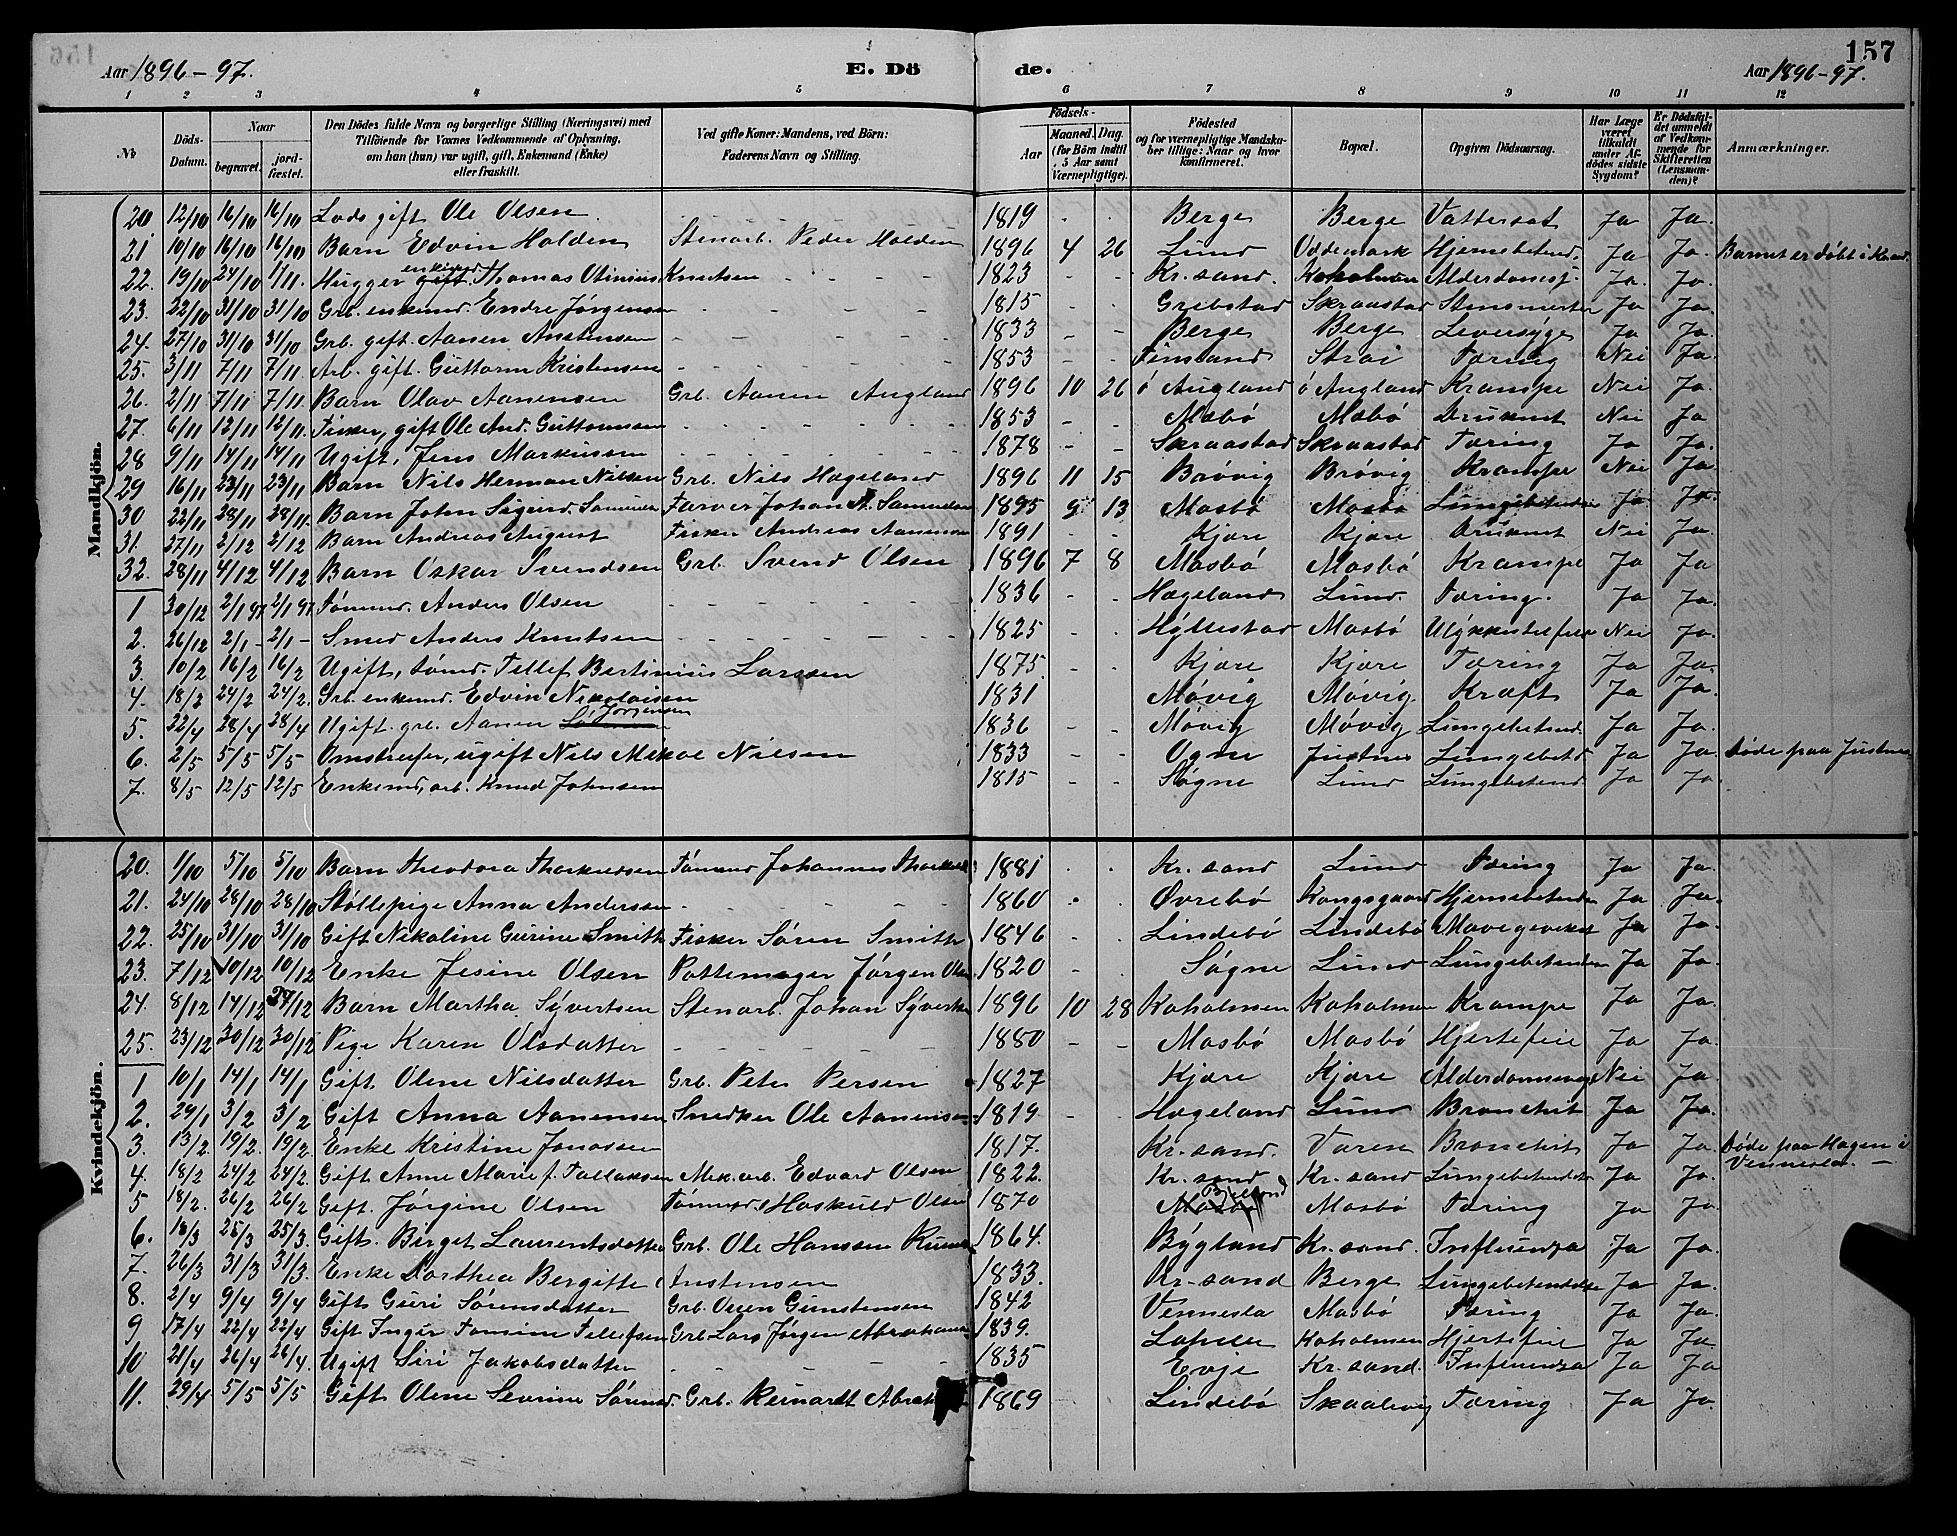 156
Aar 1896-97.
E. Dö
de.
Aar 1896-97.
157
1 2 3 4 5 6 7 8 9 10 11 12
No
Döds-Datum.
Naar
begravet.
jordfæstet.
Den Dödes fulde Navn og borgerlige Stilling (Næringsvei) med Tilföiende for Voxnes Vedkommende af Oplysning, om han (hun) var ugift, gift, Enkemand (Enke) eller fraskilt.
Ved gifte Koner: Mandens, ved Börn: Faderens Navn og Stilling.
Födsels-
Aar
Maaned.
Dag.
(for Börn indtil 5 Aar samt Værnepligtige).
Födested og for værnepligtige Mandskaber tillige: Naar og hvor konfirmeret.
Bopæl.
Opgiven Dödsaarsag.
Har Læge været tilkaldt under Afdödes sidste Sygdom?
Er Dödsfaldet anmeldt af Vedkommende for Skifteretten (Lensmanden)?
Anmærkninger.
Mandkjön.
20 12/10 16/10 16/10 Lods gift Ole Olsen. 1819 - - Berge Berge Vattersot Ja Ja.
21 10/10 16/10 16/10 Barn Edvin Holden Stenarb. Peder Holden 1896 4 26 Lund Oddemark Hjernebetend. Ja Ja. Barnet er döbt i Krsand.
22. 19/10 24/10 1/11. Hugger gift enkemd Thomas Otinius Knutsen - - - 1823 - - Kr. sand. Koholmen Alderdomssj. Ja. Ja.
23. 22/10 31/10 31/10 Grb. enkemd. Endre Jørgensen - - - 1815 - - Grebstad Skraastad Stensmerter Ja Ja.
24. 27/10 31/10 31/10 Grb. gift Aanen Anstensen - - - 1833 - - Berge Berge Leversyge Ja Ja.
25. 3/11 7/11 7/11 Arb. gift. Guttorm Kristensen - - - 1853 - - Finsland Strai Tæring Nei Ja.
26. 2/11 7/11 7/11. Barn Olav Aanensen Grb. Aanen Augland 1896 10 26 ö Augland ö Augland Krampe Nei Ja.
27. 6/11 12/11 12/11. Fisker, gift Ole And. Guttormsen - - - 1853 - - Mæbö Mæbö Druknet Nei Ja
28 9/11 14/11 14/11 Ugift, Jens Markussen - - - 1878 - - Skraastad Skraastad Tæring Ja Ja.
29 16/11 23/11 23/11 Barn Nils Herman Nilsen Grb. Nils Hægeland 1896 11 15 Brövig Brövig Krampe Nei Ja
30 22/11 28/11 28/11. Barn John Sigurd Samuelsen Farver Johan A. Samuelsen 1895 9 13 Mosbö Mosbö Lungebetendelse Ja Ja
31. 27/11 2/12 2/12 Barn Andreas August Fisker Andreas Aanensen 1891 - - Kjære Kjære Druknet Nei Ja.
32. 28/11 4/12 4/12 Barn Oskar Svendsen Grb. Svend Olsen 1896 7 8 Mosbö Mosbö Krampe Ja Ja
1 30/12 2/1 97 2/1 97 Tömmd. Anders Olsen - - - 1836 - - Hægeland Lund. Tæring. Ja Ja.
2. 26/12 2/1- 2/1- Smed Anders Knutsen - - - 1825 - - Hyllestad Mosbö Ulykkestilfelde Nei Ja.
3. 10/2 16/2 16/2 Ugift, tömd. Tellef Bertinius Larssen 1875. - - Kjære Kjære Tæring Ja Ja.
4. 18/2 24/2 24/2. Grb. enkemd. Edvin Nikolaisen 1831 - - Mövig Mövig Kræft Ja Ja
5. 22/4 28/4 28/4 Ugift grb. Aanen Jörgensen 1836 - - Mövig Mövig Lungebetend. Ja Ja.
6. 2/5 5/5 5/5 Omstreifer, ugift Nils Mikal Nilsen 1833 - - Ogne Justnes Lungebetd Ja Ja. Döde paa Justnes
7. 8/5 12/5 12/5 Enkemd, arb. Knud Johnsen 1815 - - Søgne Lund Lungebetend. Ja Ja.
Kvindekjön.
20. 1/10 5/10 5/10 Barn Theodora Thorkildsen Tömmd Johannes Thorkild 1881 . . Kr. sand Lund Tæring Ja Ja.
21. 24/10 28/10 28/10 Støllepige Anna Anderssen - - - 1860 . . Øvrebö Kongsgaard Hjernebetendelse Ja Ja.
22. 25/10 31/10 31/10 Gift Nikoline Gurine Smith Fisker Sören Smith 1846 . . Lindebö Lindebö Mavegevekst Ja Ja.
23. 7/12 10/12 10/12 Enke Jesine Olsen Pottemager Jørgen Olsen 1820 - - Søgne Lund Lungebetendelse Ja Ja.
24. 8/12 14/12 27/12 Barn Martha Syvertsen Stenarb. Johan Syvertsen 1896 10 28 Koholmen Koholmen Krampe Ja Ja.
25. 23/12 30/12 30/12 Pige Karen Olsdatter - - - 1880 - - Mosbö Mosbö Hjertefeil Ja Ja.
1 10/1 14/1 14/1 Gift Olene Nilsdatter Grb. Peter Persen 1827 Kjære Kjære Alderdomssvaghed Nei Ja.
2. 29/1 3/2 3/2 Gift Anna Aanensen Snedker Ole Aanensen 1819 - - Hægeland Lund Bronchit Ja Ja.
3. 13/2. 19/2. 19/2 Enke Kristine Jonassen 1817. Kr. sand. Varen Bronchit Ja Ja. Döde paa Hagen i Vennesla. -
4 18/2 24/2 24/2. Gift Anne Marie f. Tallaksen Mek. arb. Edvard Olsen 1822. Kr. sand Kr. sand Lungebetendelse Ja Ja.
5 18/2. 26/2 26/2 Gift. Jørgine Olsen Tømmd. Haskuld Olsen 1870 Mosbö Mosbö Tæring Ja Ja.
6. 18/3 25/3 25/3. Gift. Birget Laurentsdatter Grb. Ole Hanssen 1864. Bygland Kr. sand. Influenza Ja Ja.
7. 26/3 31/3 31/3. Enke Dorthea Bergitte Anstensen 1833. Kr. sand Berge Lungebetendelse Ja Ja.
8. 2/4 9/4 9/4 Gift Guri Sörensdatter Grb. Osen Gunstensen 1842 Vennesla Mosbö Tæring Ja Ja.
9 17/4 22/4 22/4 Gift Inger Tomine Tellefsen Grb. Lars Jørgen Abrahamsen 1839. Koholmen Hjertefeil Ja Ja.
10 21/4 26/4 26/4. Ugift Siri Jakobsdatter - - - 1835 Evje Kr. sand. Influenza Ja Ja
11. 29/4 5/5 5/5 Gift Olene Severine Sørensd. Grb. Reinardt 1869 Lindebö Skaalevig Tæring Ja Ja.